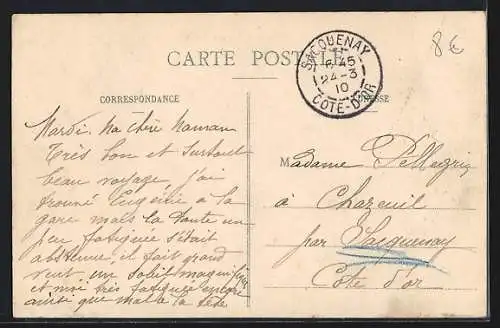 8€
CARTE POSTALE
SACQUENAY
6 45
24-3
10
COTE-D'OR
CORRESPONDANCE
ADRESSE
Mardi. Ma chère Maman
Très bon et surtout
beau voyage j'ai
trouvé Eugénie à la
gare mais la Tante un
peu fatiguée s'était
abstenue, il fait grand
vent un soleil magnifique
et moi très fatiguée
ainsi que mal à la tête
Madame Pellegrin
à Chazeuil
par Sacquenay
Côte d'or